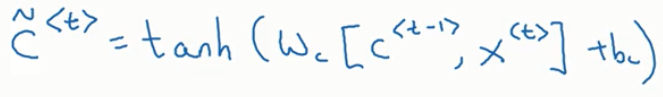 c̃^{<t>} = tanh (W_c [c^{<t-1>}, x^{<t>}] + b_c)